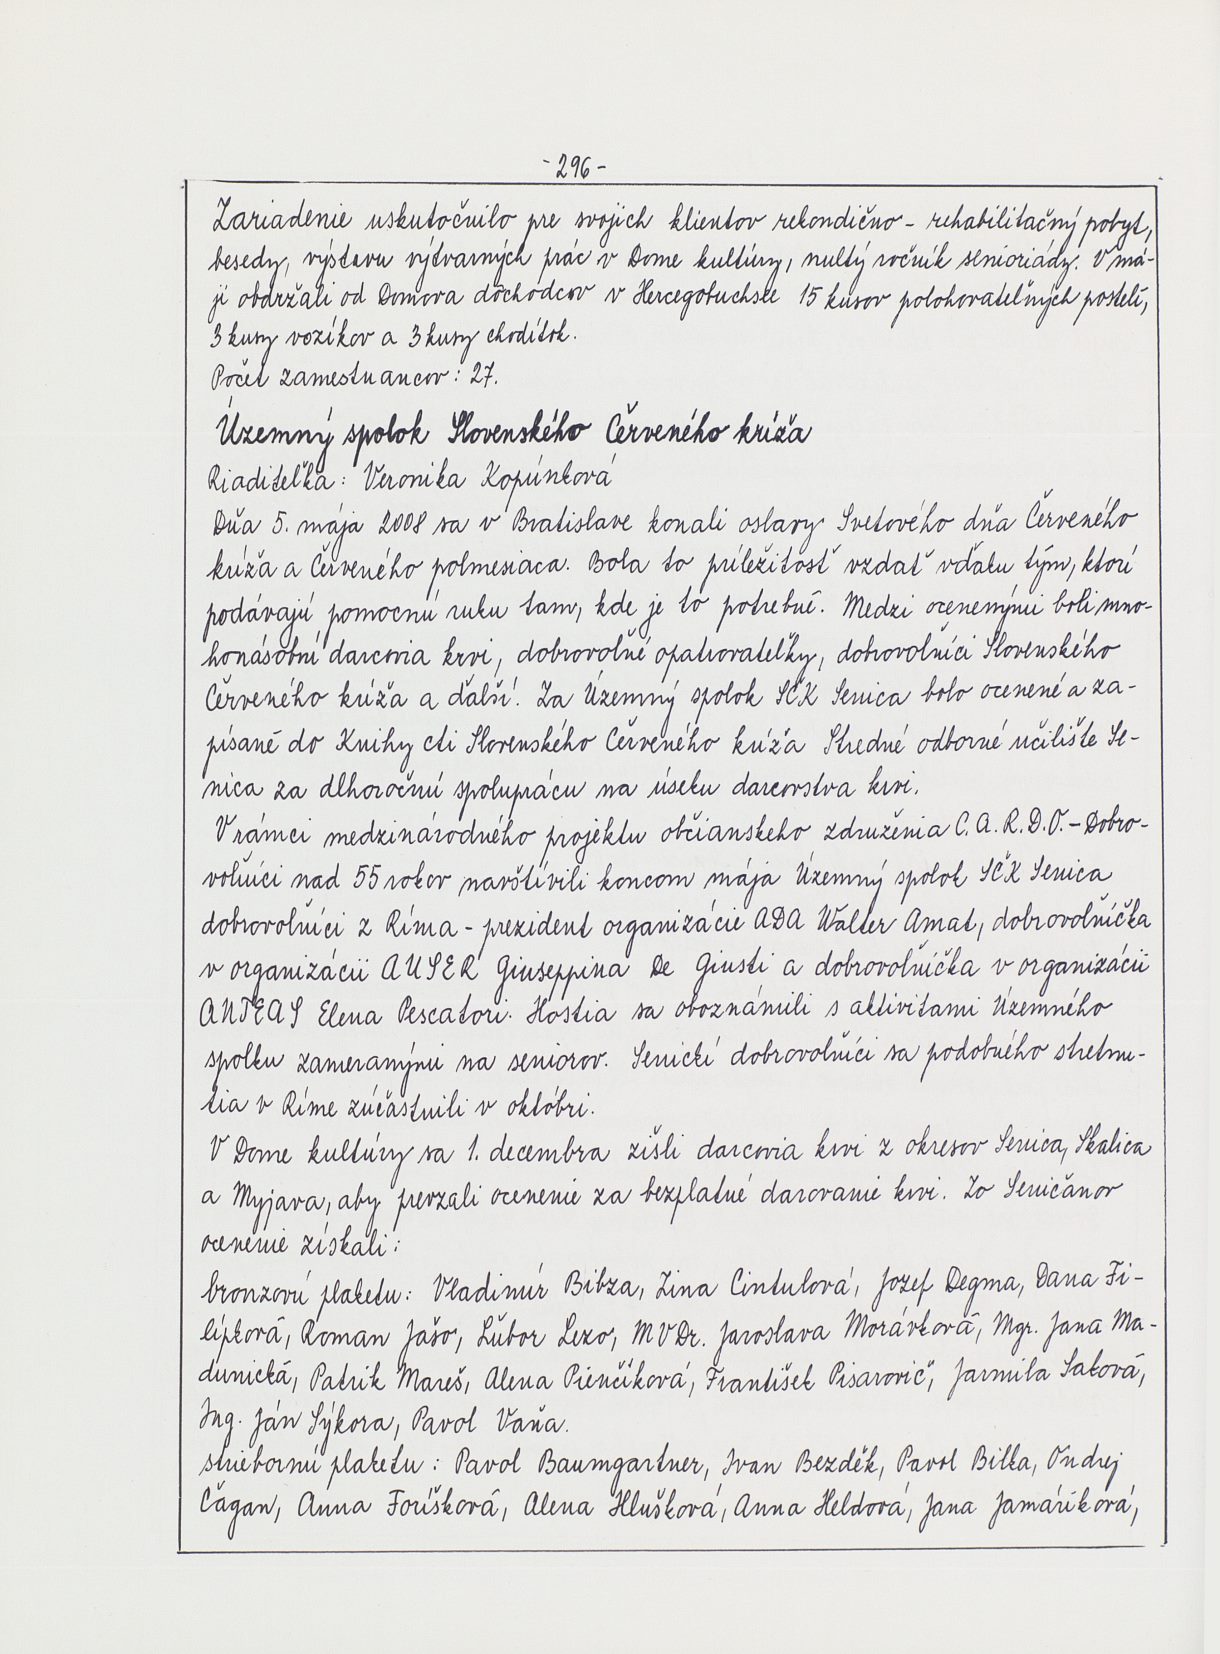 - 296 -
Zariadenie uskutočnilo pre svojich klientov rekondično - rehabilitačný pobyt,
besedy, výstavu výtvarných prác v Dome kultúry, nultý ročník senioriády. V má-
ji obdržali od Domova dôchodcov v Hercegobuchsee 15 kusov polohovateľných postelí,
3 kusy vozíkov a 3 kusy chodítok.
Počet zamestnancov: 27.
Územný spolok Slovenského Červeného kríža
Riaditeľka: Veronika Kopúnková
Dňa 5. mája 2008 sa v Bratislave konali oslavy Svetového dňa Červeného
kríža a Červeného polmesiaca. Bola to príležitosť vzdať vďaku tým, ktorí
podávajú pomocnú ruku tam, kde je to potrebné. Medzi ocenenými boli mno-
honásobní darcovia krvi, dobrovoľné opatrovateľky, dobrovoľníci Slovenského
Červeného kríža a ďalší. Za Územný spolok SČK Senica bolo ocenené a za-
písané do Knihy cti Slovenského Červeného kríža Stredné odborné učilište Se-
nica za dlhoročnú spoluprácu na úseku darcovstva krvi.
V rámci medzinárodného projektu občianskeho združenia C.A.R.D.O. - Dobro-
voľníci nad 55 rokov navštívili koncom mája Územný spolok SČK Senica
dobrovoľníci z Ríma - prezident organizácie ADA Walter Amat, dobrovoľníčka
v organizácii AUSER Giuseppina De Giusti a dobrovoľníčka v organizácii
ANTEAS Elena Pescatori. Hostia sa oboznámili s aktivitami Územného
spolku zameranými na seniorov. Senickí dobrovoľníci sa podobného stretnu-
tia v Ríme zúčastnili v októbri.
V Dome kultúry sa 1. decembra zišli darcovia krvi z okresov Senica, Skalica
a Myjava, aby prevzali ocenenie za bezplatné darovanie krvi. Zo Seničanov
ocenenie získali:
bronzovú plaketu: Vladimír Bibza, Zina Cintulová, Jozef Degma, Dana Fi-
lípková, Roman Jašo, Ľubor Lezo, MVDr. Jaroslava Morávková, Mgr. Jana Ma-
dunická, Patrik Mareš, Alena Pienčíková, František Pisarovič, Jarmila Saková,
Ing. Ján Sýkora, Pavol Vaňa.
striebornú plaketu: Pavol Baumgartner, Ivan Bezděk, Pavol Bilka, Ondrej
Čagan, Anna Foríšková, Alena Hlušková, Anna Heldová, Jana Jamáriková,